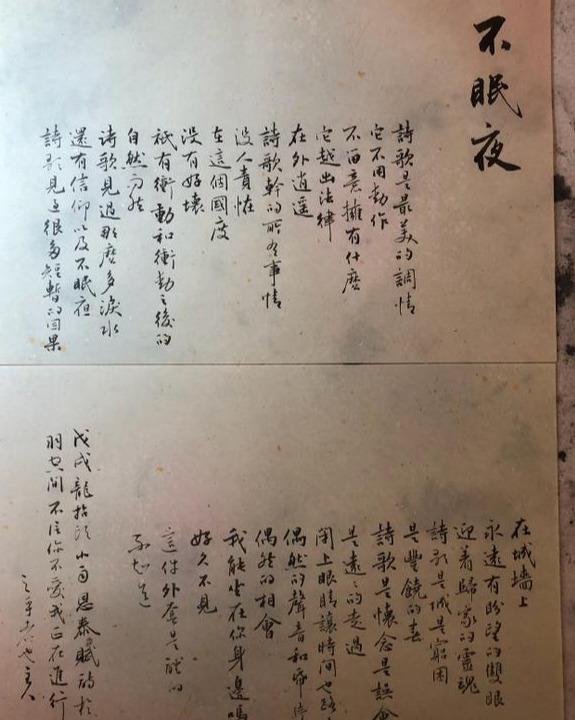 不眠夜
詩歌是最美的調情
它不用動作
不留意擁有什麼
它越出法律
在外逍遥
詩歌幹的所有事情
没人責怪
在這個國度
没有好壞
衹有衝動和衝動之後的
自然而然
诗歌見過那麼多淚水
還有信仰以及不眠夜
詩歌見過很多短暫的因果
在城墙上
永遠有盼望的雙眼
迎着歸家的靈魂
詩歌是城是窮困
是豐饒的春
詩歌是懷念是誤會
是遠的走過
閉上眼睛讓時間也
偶然的聲音和
偶然的相會
我能坐在你身邊嗎
好久不见
這件外套是誰的
不知道
戊戌龍抬頭小雨恩泰賦詩於
羽也間不住你不愛我正在進行
主人